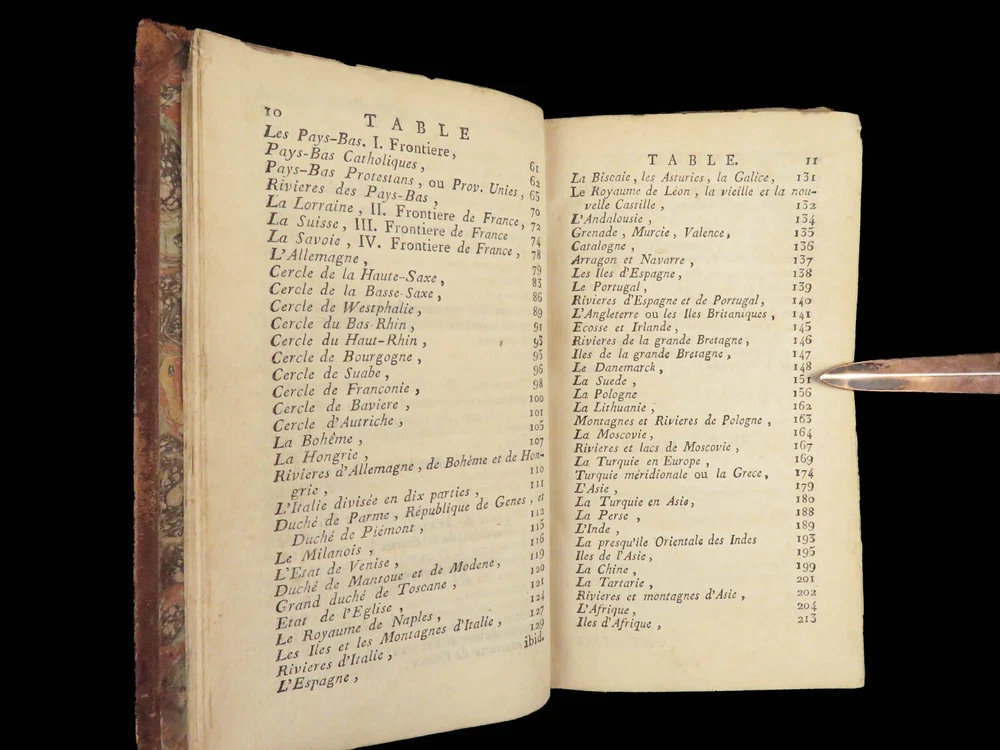 10
TABLE
Les Pays-Bas. I. Frontiere, 61
Pays-Bas Catholiques, 62
Pays-Bas Protestans, ou Prov. Unies, 65
Rivieres des Pays-Bas, 70
La Lorraine, II. Frontiere de France, 72
La Suisse, III. Frontiere de France 74
La Savoie, IV. Frontiere de France, 78
L'Allemagne, 79
Cercle de la Haute-Saxe, 83
Cercle de la Basse-Saxe, 86
Cercle de Westphalie, 89
Cercle du Bas-Rhin, 91
Cercle du Haut-Rhin, 93
Cercle de Bourgogne, 95
Cercle de Suabe, 96
Cercle de Franconie, 98
Cercle de Baviere, 100
Cercle d'Autriche, 101
La Bohême, 105
La Hongrie, 107
Rivieres d'Allemagne, de Bohême et de Hon-
grie, 110
L'Italie divisée en dix parties, 111
Duché de Parme, République de Genes, et
Duché de Piémont, 112
Le Milanois, 115
L'Etat de Venise, 116
Duché de Mantoue et de Modene, 119
Grand duché de Toscane, 120
Etat de l'Eglise, 121
Le Royaume de Naples, 124
Les Iles et les Montagnes d'Italie, 127
Rivieres d'Italie, 129
L'Espagne, ibid.
TABLE. 11
La Biscaie, les Asturies, la Galice, 131
Le Royaume de Léon, la vieille et la nou-
velle Castille, 132
L'Andalousie, 134
Grenade, Murcie, Valence, 135
Catalogne, 136
Arragon et Navarre, 137
Les Iles d'Espagne, 138
Le Portugal, 139
Rivieres d'Espagne et de Portugal, 140
L'Angleterre ou les Iles Britaniques, 141
Ecosse et Irlande, 145
Rivieres de la grande Bretagne, 146
Iles de la grande Bretagne, 147
Le Danemarck, 148
La Suede, 151
La Pologne 156
La Lithuanie, 162
Montagnes et Rivieres de Pologne, 163
La Moscovie, 164
Rivieres et lacs de Moscovie, 167
La Turquie en Europe, 169
Turquie méridionale ou la Grece, 174
L'Asie, 179
La Turquie en Asie, 180
La Perse, 188
L'Inde, 189
La presqu'île Orientale des Indes 193
Iles de l'Asie, 195
La Chine, 199
La Tartarie, 201
Rivieres et montagnes d'Asie, 202
L'Afrique, 204
Iles d'Afrique, 213